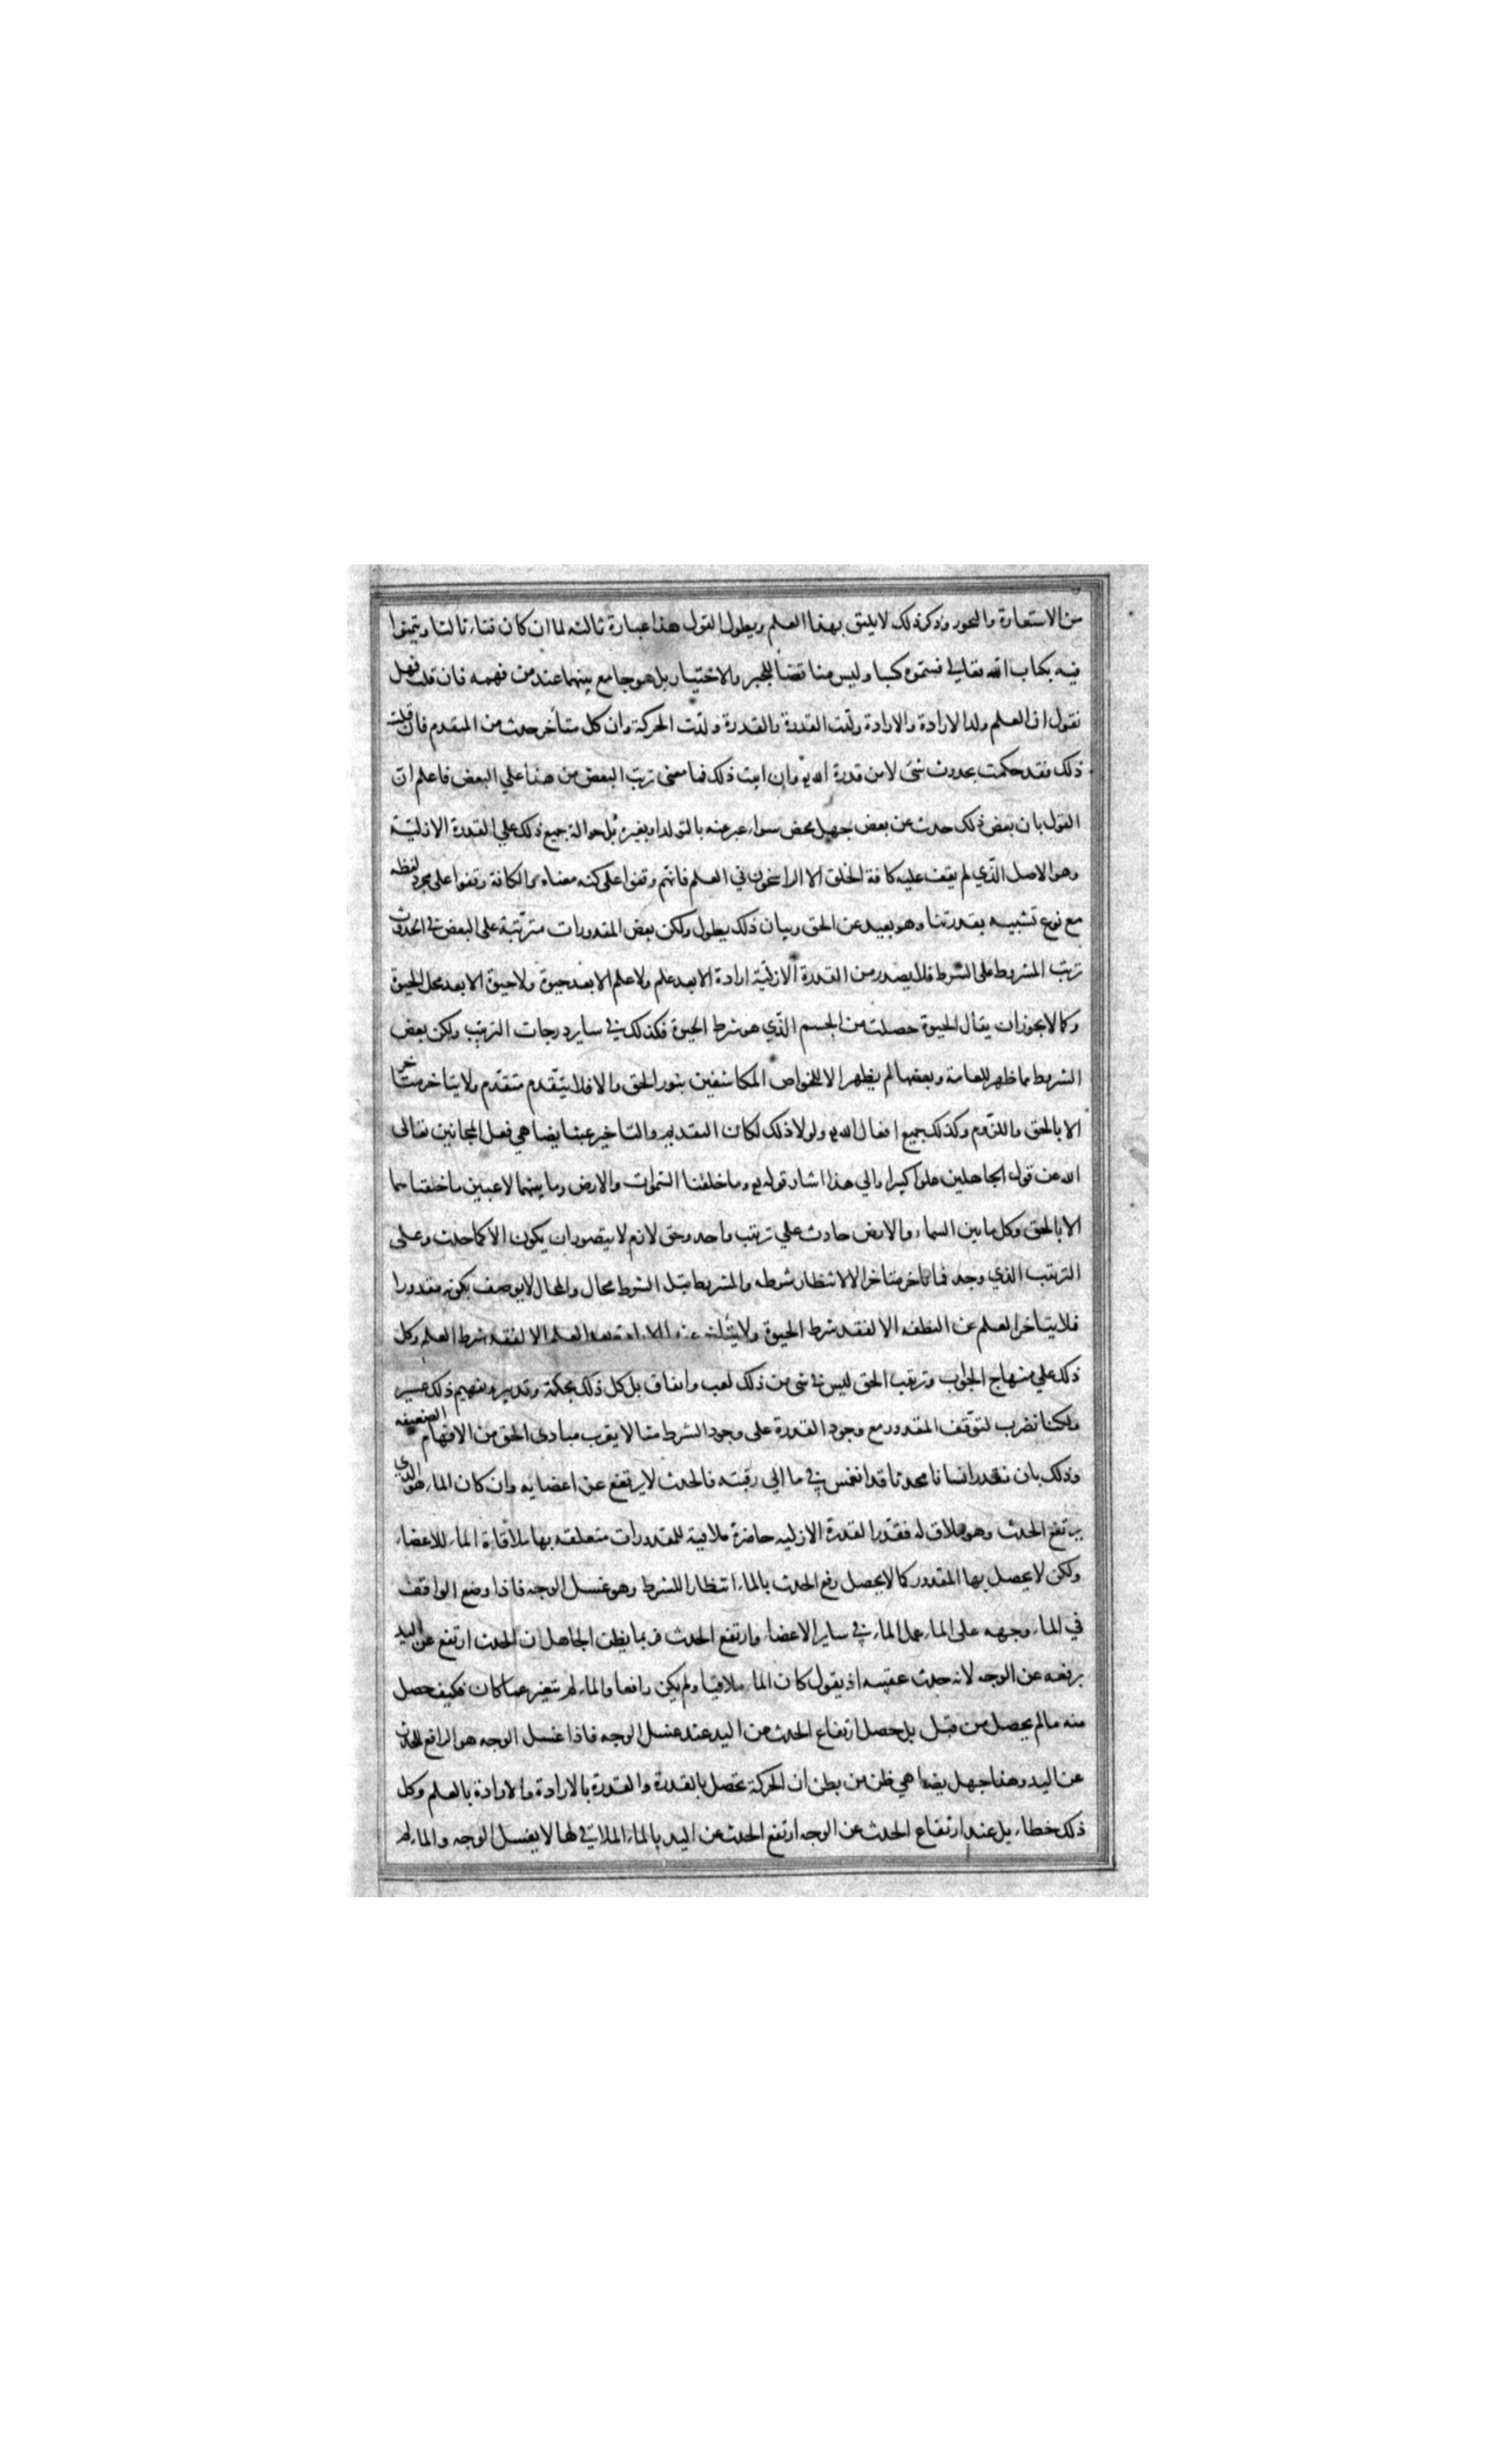 من الاستعارة والتجوز وذكر ذلك لا يليق بهذا العلم ويطول القول هذا عبارة ثالثة لما ان كان فنا ثالثا وتيمنوا
فيه بكتاب الله تعالى فسموه كسبا وليس مناقضا للجبر والاختيار بل هو جامع بينهما عند من فهمه فان قلت فهل
نقول ان العلم ولد الارادة والارادة ولدت القدرة والقدرة ولدت الحركة وان كل متأخر حدث من المتقدم فان قلت
ذلك فقد حكمت بحدوث شئ لا من قدرة الله وان ابيت ذلك فما معنى ترتب البعض من هذا علي البعض فاعلم ان
القول بان بعض ذلك حدث عن بعض جهل محض سواء عبر عنه بالتولد او بغيره بل حوالة جميع ذلك علي القدرة الازلية
وهو الاصل الذي لم يقف عليه كافة الخلق الا الراسخون في العلم فانهم وقفوا على كنه معناه والكافة وقفوا على مجرد لفظه
مع نوع تشبيه بقدرتنا وهو بعيد عن الحق وبيان ذلك يطول ولكن بعض المقدورات مترتبة على البعض في الحدوث
ترتب المشروط على الشرط فلا يصدر من القدرة الازلية ارادة الا بعد علم ولا علم الا بعد حيوة ولا حيوة الا بعد محل الحيوة
وكما لا يجوز ان يقال الحيوة حصلت من الجسم الذي هو شرط الحيوة فكذلك في ساير درجات الترتيب ولكن بعض
الشروط مما ظهر للعامة وبعضها لم يظهر الا للخواص المكاشفين بنور الحق والا فلا يتقدم متقدم ولا يتاخر متاخر
الا بالحق واللزوم وكذلك جميع افعال الله ولولا ذلك لكان التقديم والتاخير عبثا يضاهي فعل المجانين تعالى
الله عن قول الجاهلين علوا كبيرا والي هذا اشار قوله وما خلقنا السموات والارض وما بينهما لاعبين ما خلقناهما
الا بالحق وكل ما بين السماء والارض حادث علي ترتيب واحد وحق لازم لا يتصور ان يكون الا كما حدث وعلى
الترتيب الذي وجد فما تاخر متاخر الا لانتظار شرطه والمشروط قبل الشرط محال والمحال لا يوصف بكونه مقدورا
فلا يتاخر العلم عن النطفه الا لفقد شرط الحيوة ولا يتاخر عنه الارادة بعد العلم الا لفقد شرط العلم وكل
ذلك علي منهاج الجواب وترتيب الحق ليس في شئ من ذلك لعب واتفاق بل كل ذلك بحكمة وتدبير وتفهيم ذلك عسير
ولكنا نضرب لتوقف المقدور مع وجود القدرة على وجود الشرط مثالا يقرب مبادى الحق من الافهام الضعيفه
وذلك بان نقدر انسانا محدثا قد انغمس في ما الي رقبته فالحدث لا يرتفع عن اعضايه وان كان الماء هو الذي
يرتفع الحدث وهو ملاق له فقدر القدرة الازليه حاضرة ملاقية للمقدورات متعلقه بها ملاقاة الماء للاعضاء
ولكن لا يحصل بها المقدور كما لا يحصل رفع الحدث بالماء انتظارا للشرط وهو غسل الوجه فاذا وضع الواقف
في الماء وجهه على الماء عمل الماء في ساير الاعضاء وارتفع الحدث فربما يظن الجاهل ان الحدث ارتفع عن اليد
برفعه عن الوجه لانه حدث عقيبه اذ يقول كان الماء ملاقيا ولم يكن رافعا والماء لم يتغير عما كان فكيف حصل
منه ما لم يحصل من قبل بل حصل ارتفاع الحدث عن اليد عند غسل الوجه فاذا غسل الوجه هو الرافع للحدث
عن اليد وهذا جهل يضاهي ظن من يظن ان الحركة تحصل بالقدرة والقدرة بالارادة والارادة بالعلم وكل
ذلك خطاء بل عند ارتفاع الحدث عن الوجه ارتفع الحدث عن اليد بالماء الملاقي لها لا بغسل الوجه والماء لم